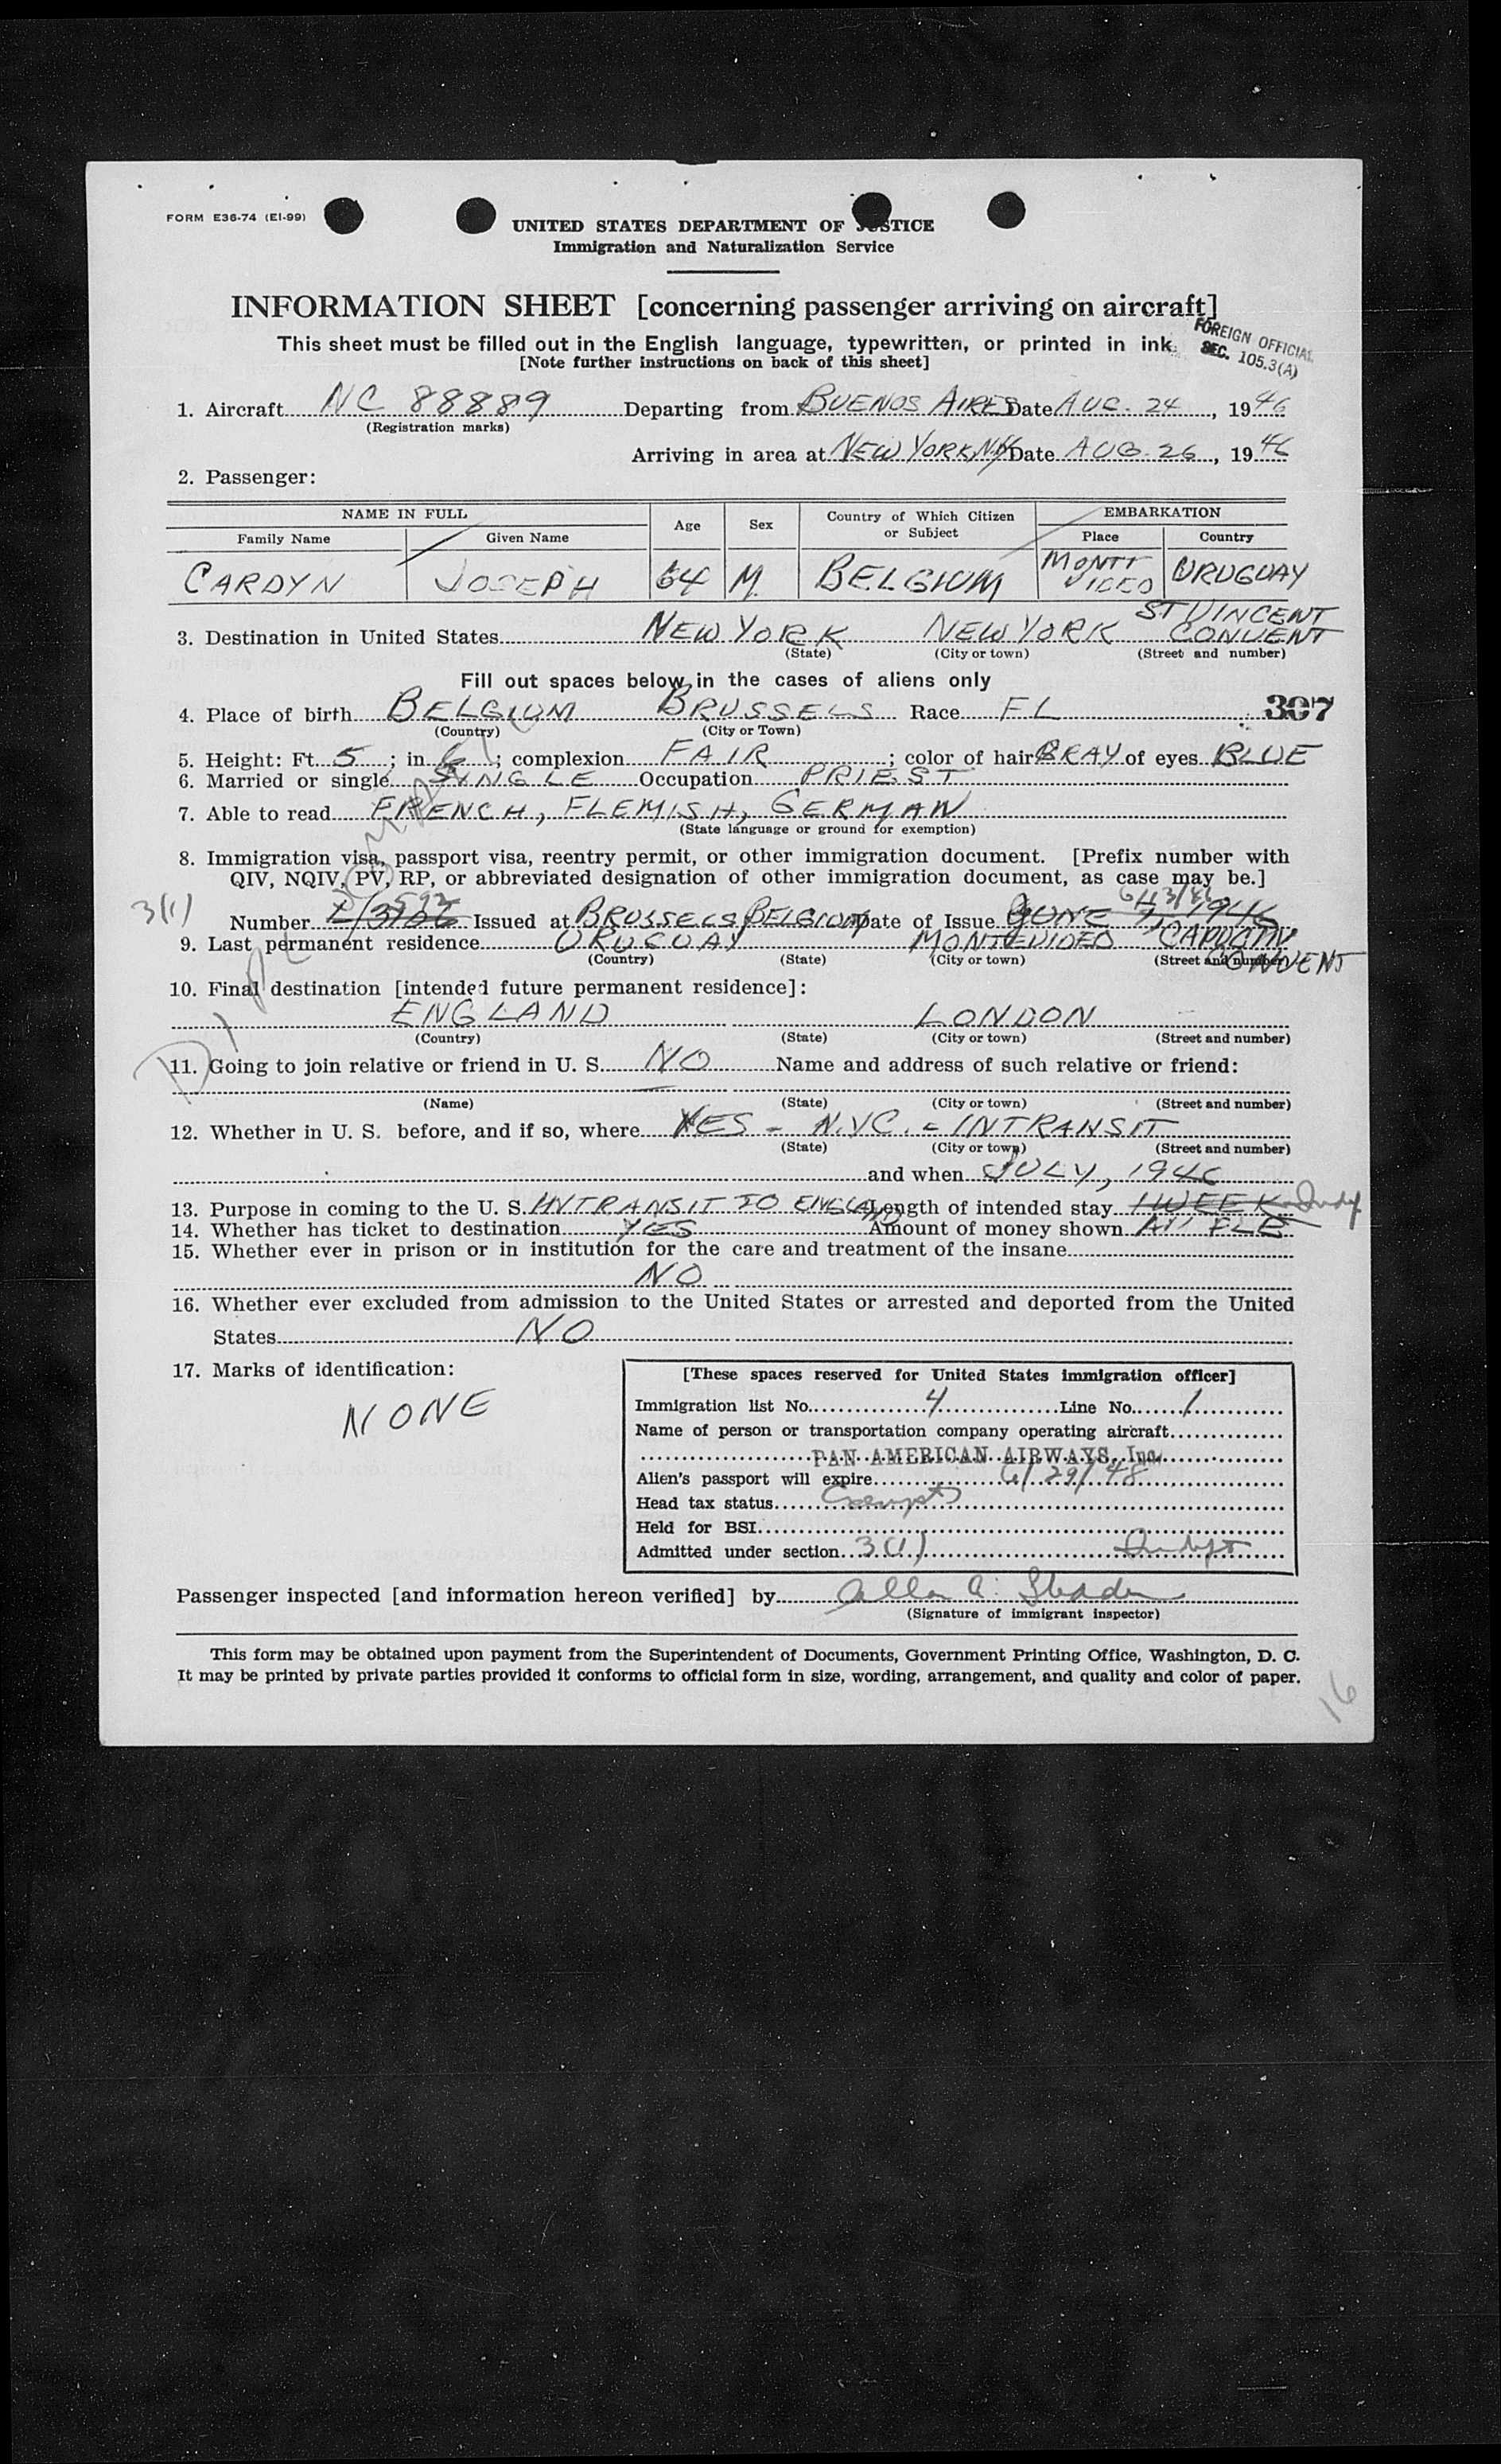 FORM E36-74 (EI-99)
UNITED STATES DEPARTMENT OF JUSTICE
Immigration and Naturalization Service
INFORMATION SHEET [concerning passenger arriving on aircraft]
This sheet must be filled out in the English language, typewritten, or printed in ink
[Note further instructions on back of this sheet]
FOREIGN OFFICIAL
SEC. 105.3(A)
1. Aircraft NC 88889 Departing from BUENOS AIRES Date AUG. 24, 1946
(Registration marks)
Arriving in area at NEW YORK, NY Date AUG. 26, 1946
2. Passenger:
NAME IN FULL Age Sex Country of Which Citizen or Subject EMBARKATION
Family Name Given Name Place Country
CARDYN JOSEPH 64 M. BELGIUM MONTEVIDEO URUGUAY
3. Destination in United States NEW YORK NEW YORK ST VINCENT CONVENT
(State) (City or town) (Street and number)
Fill out spaces below in the cases of aliens only
4. Place of birth BELGIUM BRUSSELS Race FL 307
(Country) (City or Town)
5. Height: Ft. 5; in 6; complexion FAIR; color of hair GRAY of eyes BLUE
6. Married or single SINGLE Occupation PRIEST
7. Able to read FRENCH, FLEMISH, GERMAN
(State language or ground for exemption)
8. Immigration visa, passport visa, reentry permit, or other immigration document. [Prefix number with
QIV, NQIV, PV, RP, or abbreviated designation of other immigration document, as case may be.]
3(1)
Number Issued at BRUSSELS, BELGIUM Date of Issue JUNE 7, 1946
9. Last permanent residence URUGUAY MONTEVIDEO CAPUCIN CONVENT
(Country) (State) (City or town) (Street and number)
DIPLOMATIC
10. Final destination [intended future permanent residence]:
ENGLAND LONDON
(Country) (State) (City or town) (Street and number)
11. Going to join relative or friend in U. S. NO Name and address of such relative or friend:
(Name) (State) (City or town) (Street and number)
12. Whether in U. S. before, and if so, where YES - N.YC. - INTRANSIT
(State) (City or town) (Street and number)
and when JULY, 1946
13. Purpose in coming to the U. S. INTRANSIT TO ENGLAND Length of intended stay 1 WEEK Indef
14. Whether has ticket to destination YES Amount of money shown
15. Whether ever in prison or in institution for the care and treatment of the insane
NO
16. Whether ever excluded from admission to the United States or arrested and deported from the United
States NO
17. Marks of identification:
NONE
[These spaces reserved for United States immigration officer]
Immigration list No. 4 Line No. 1
Name of person or transportation company operating aircraft
PAN AMERICAN AIRWAYS, Inc.
Alien's passport will expire 6/29/48
Head tax status Exempt
Held for BSI
Admitted under section 3(1)
Passenger inspected [and information hereon verified] by
(Signature of immigrant inspector)
This form may be obtained upon payment from the Superintendent of Documents, Government Printing Office, Washington, D. C.
It may be printed by private parties provided it conforms to official form in size, wording, arrangement, and quality and color of paper.
16